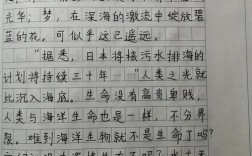 光华;梦,在深海的激流中绽放碧
蓝的花。可似乎这已遥远。
“据悉,日本将核污水排海的
计划将持续三十年 “人类之光就
此沉入海底。生命没有高贵卑贱,
人类与海洋生命也是一样,不分界
限。难到海洋生物就不是生命了吗?